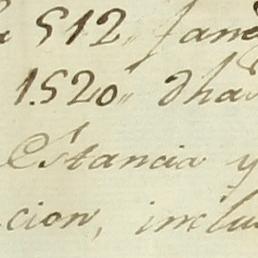 512
1.520,, dha
Estancia y
cion, inclu